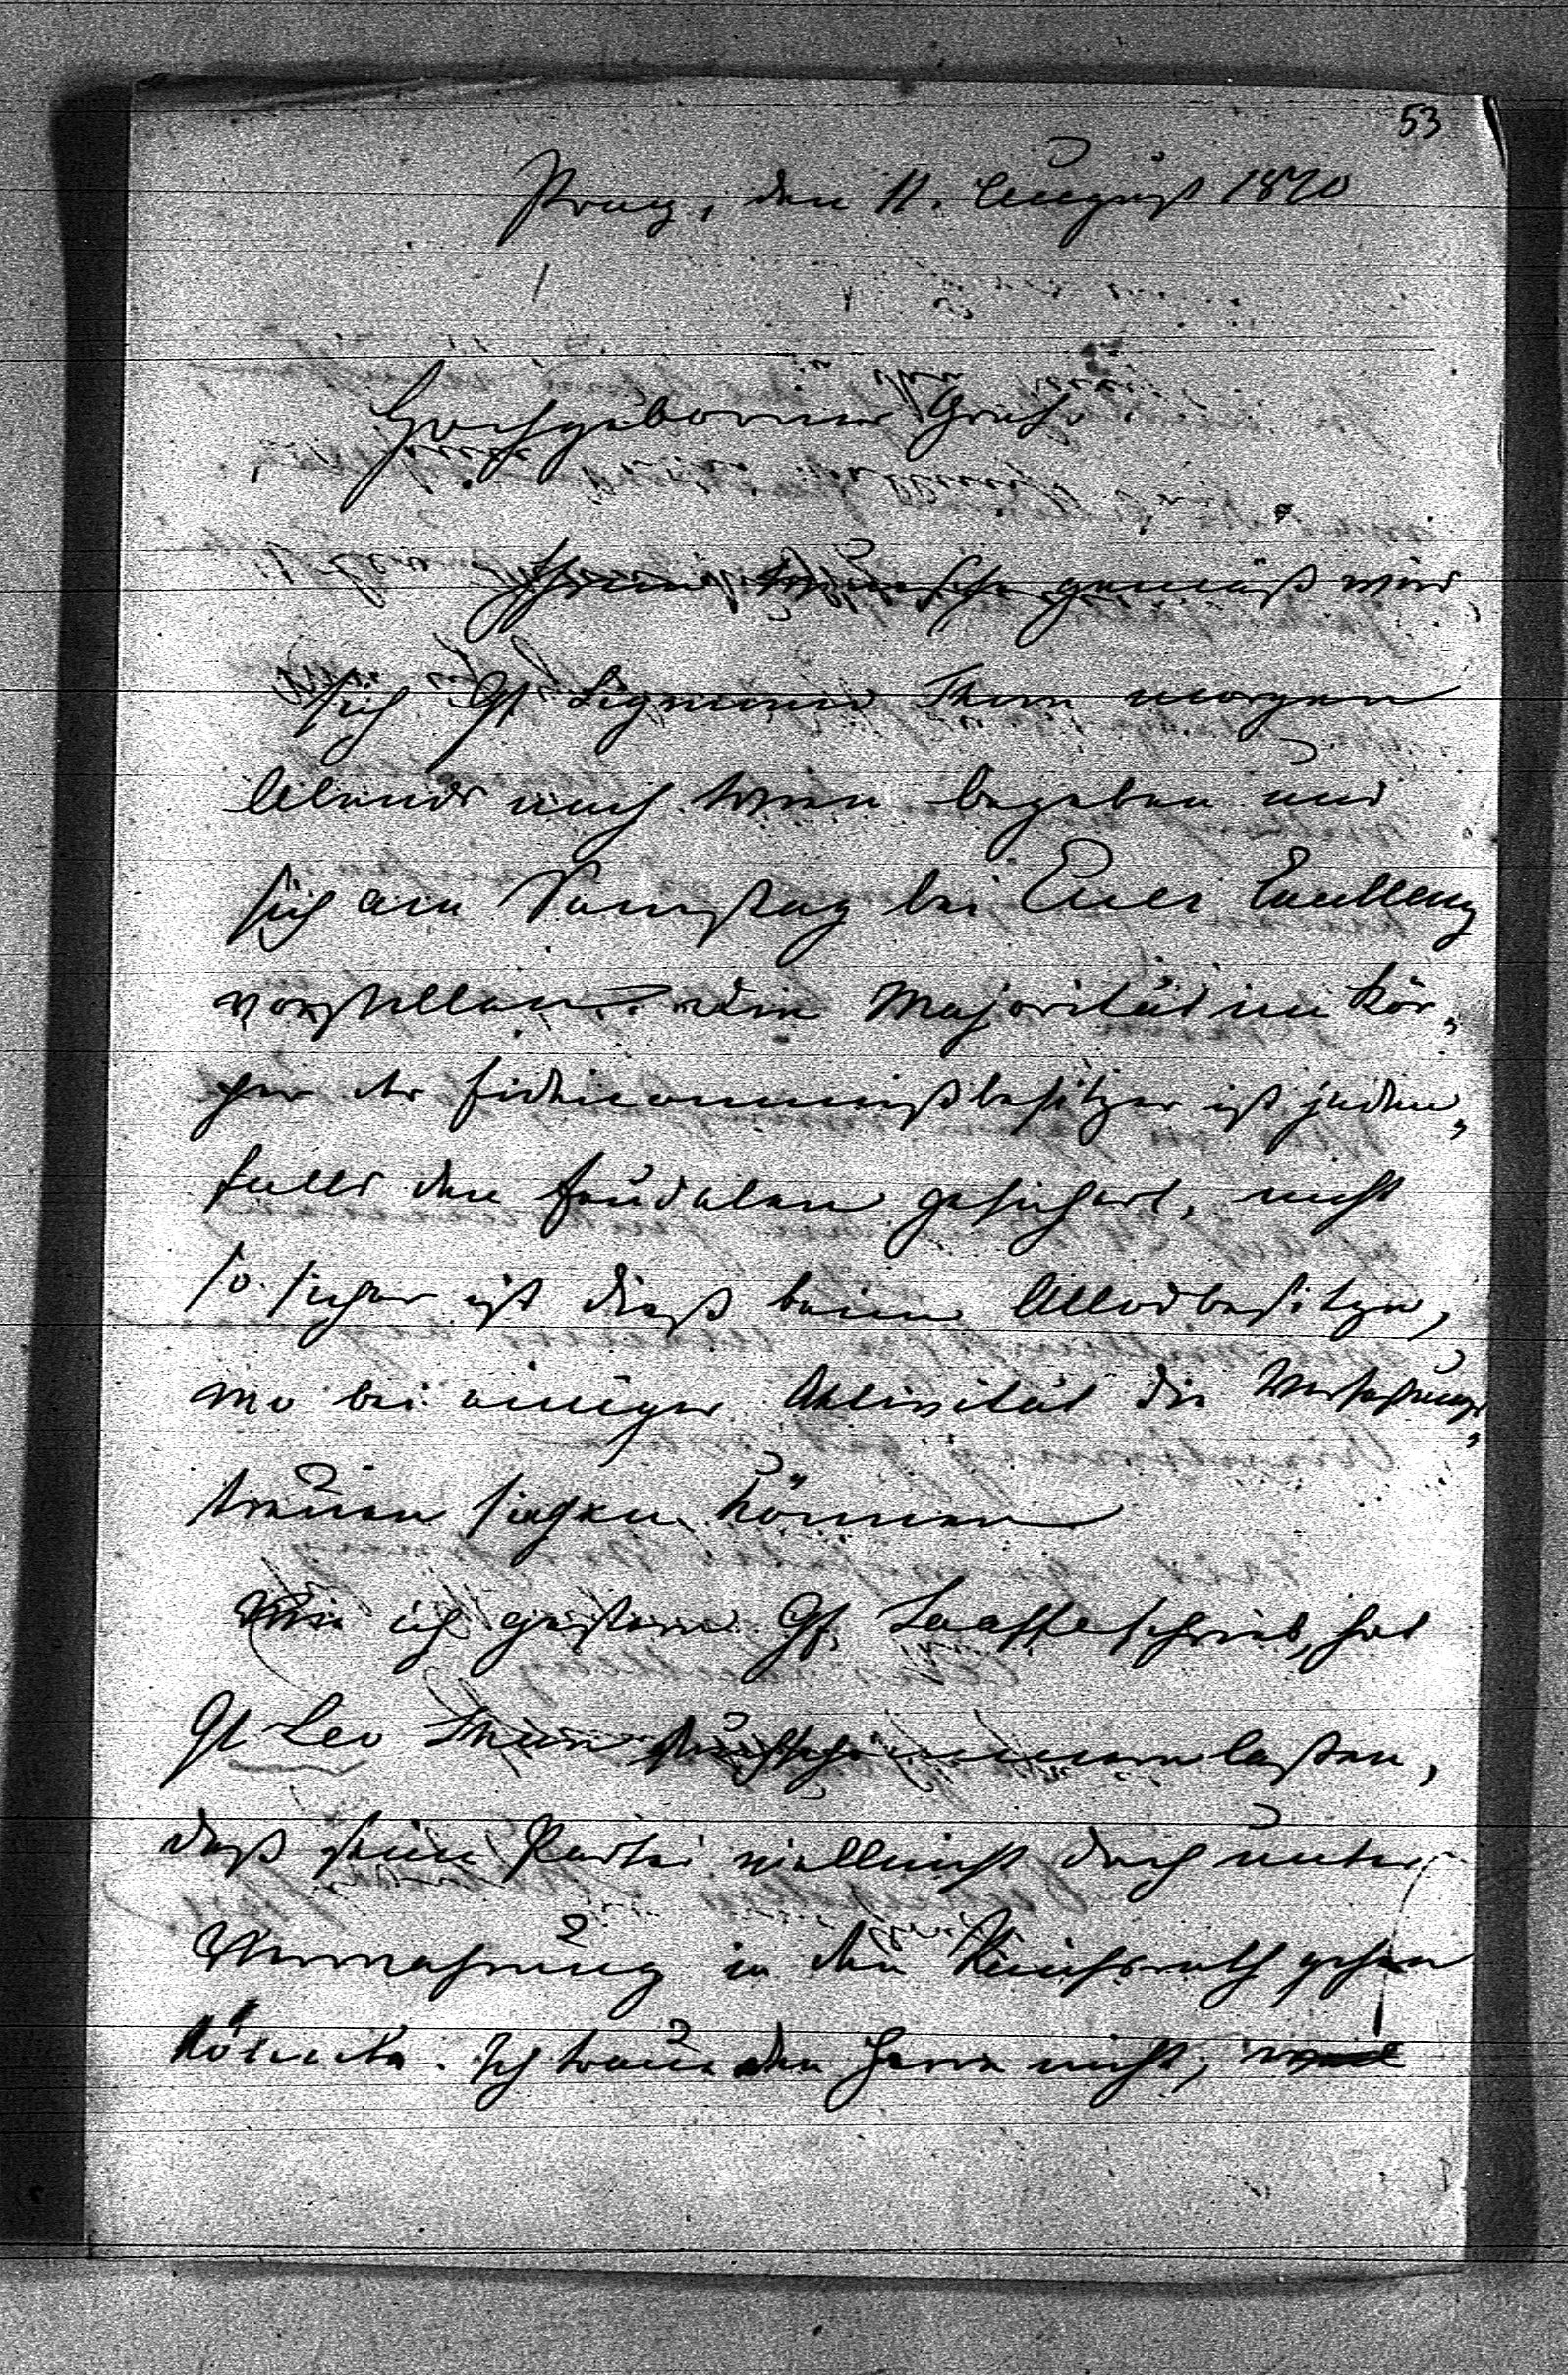 53
Prag, den 11. August 1870
Hochgeborner Graf!
Ihrem Wunsche gemäß wird
sich Gf Sigmund Thun morgen
Abends nach Wien begeben und
sich am Samstag bei Euer Excellenz
vorstellen. Die Majorität im Kör„
per der Fideicommißbesitzer ist jeden„
falls den Feudalen gesichert, nicht
so sicher ist dieß beim Allodbesitze,
wo bei einiger Aktivität die Verfassungs„
treuen siegen können
Wie ich gestern Gf. Taaffe schrieb, hat
Gf Leo Thun lassen,
daß seine Partei vielleicht doch unter
Verwahrung in den Reichsrath gehen
könnte. Ich traue den Herrn nicht,